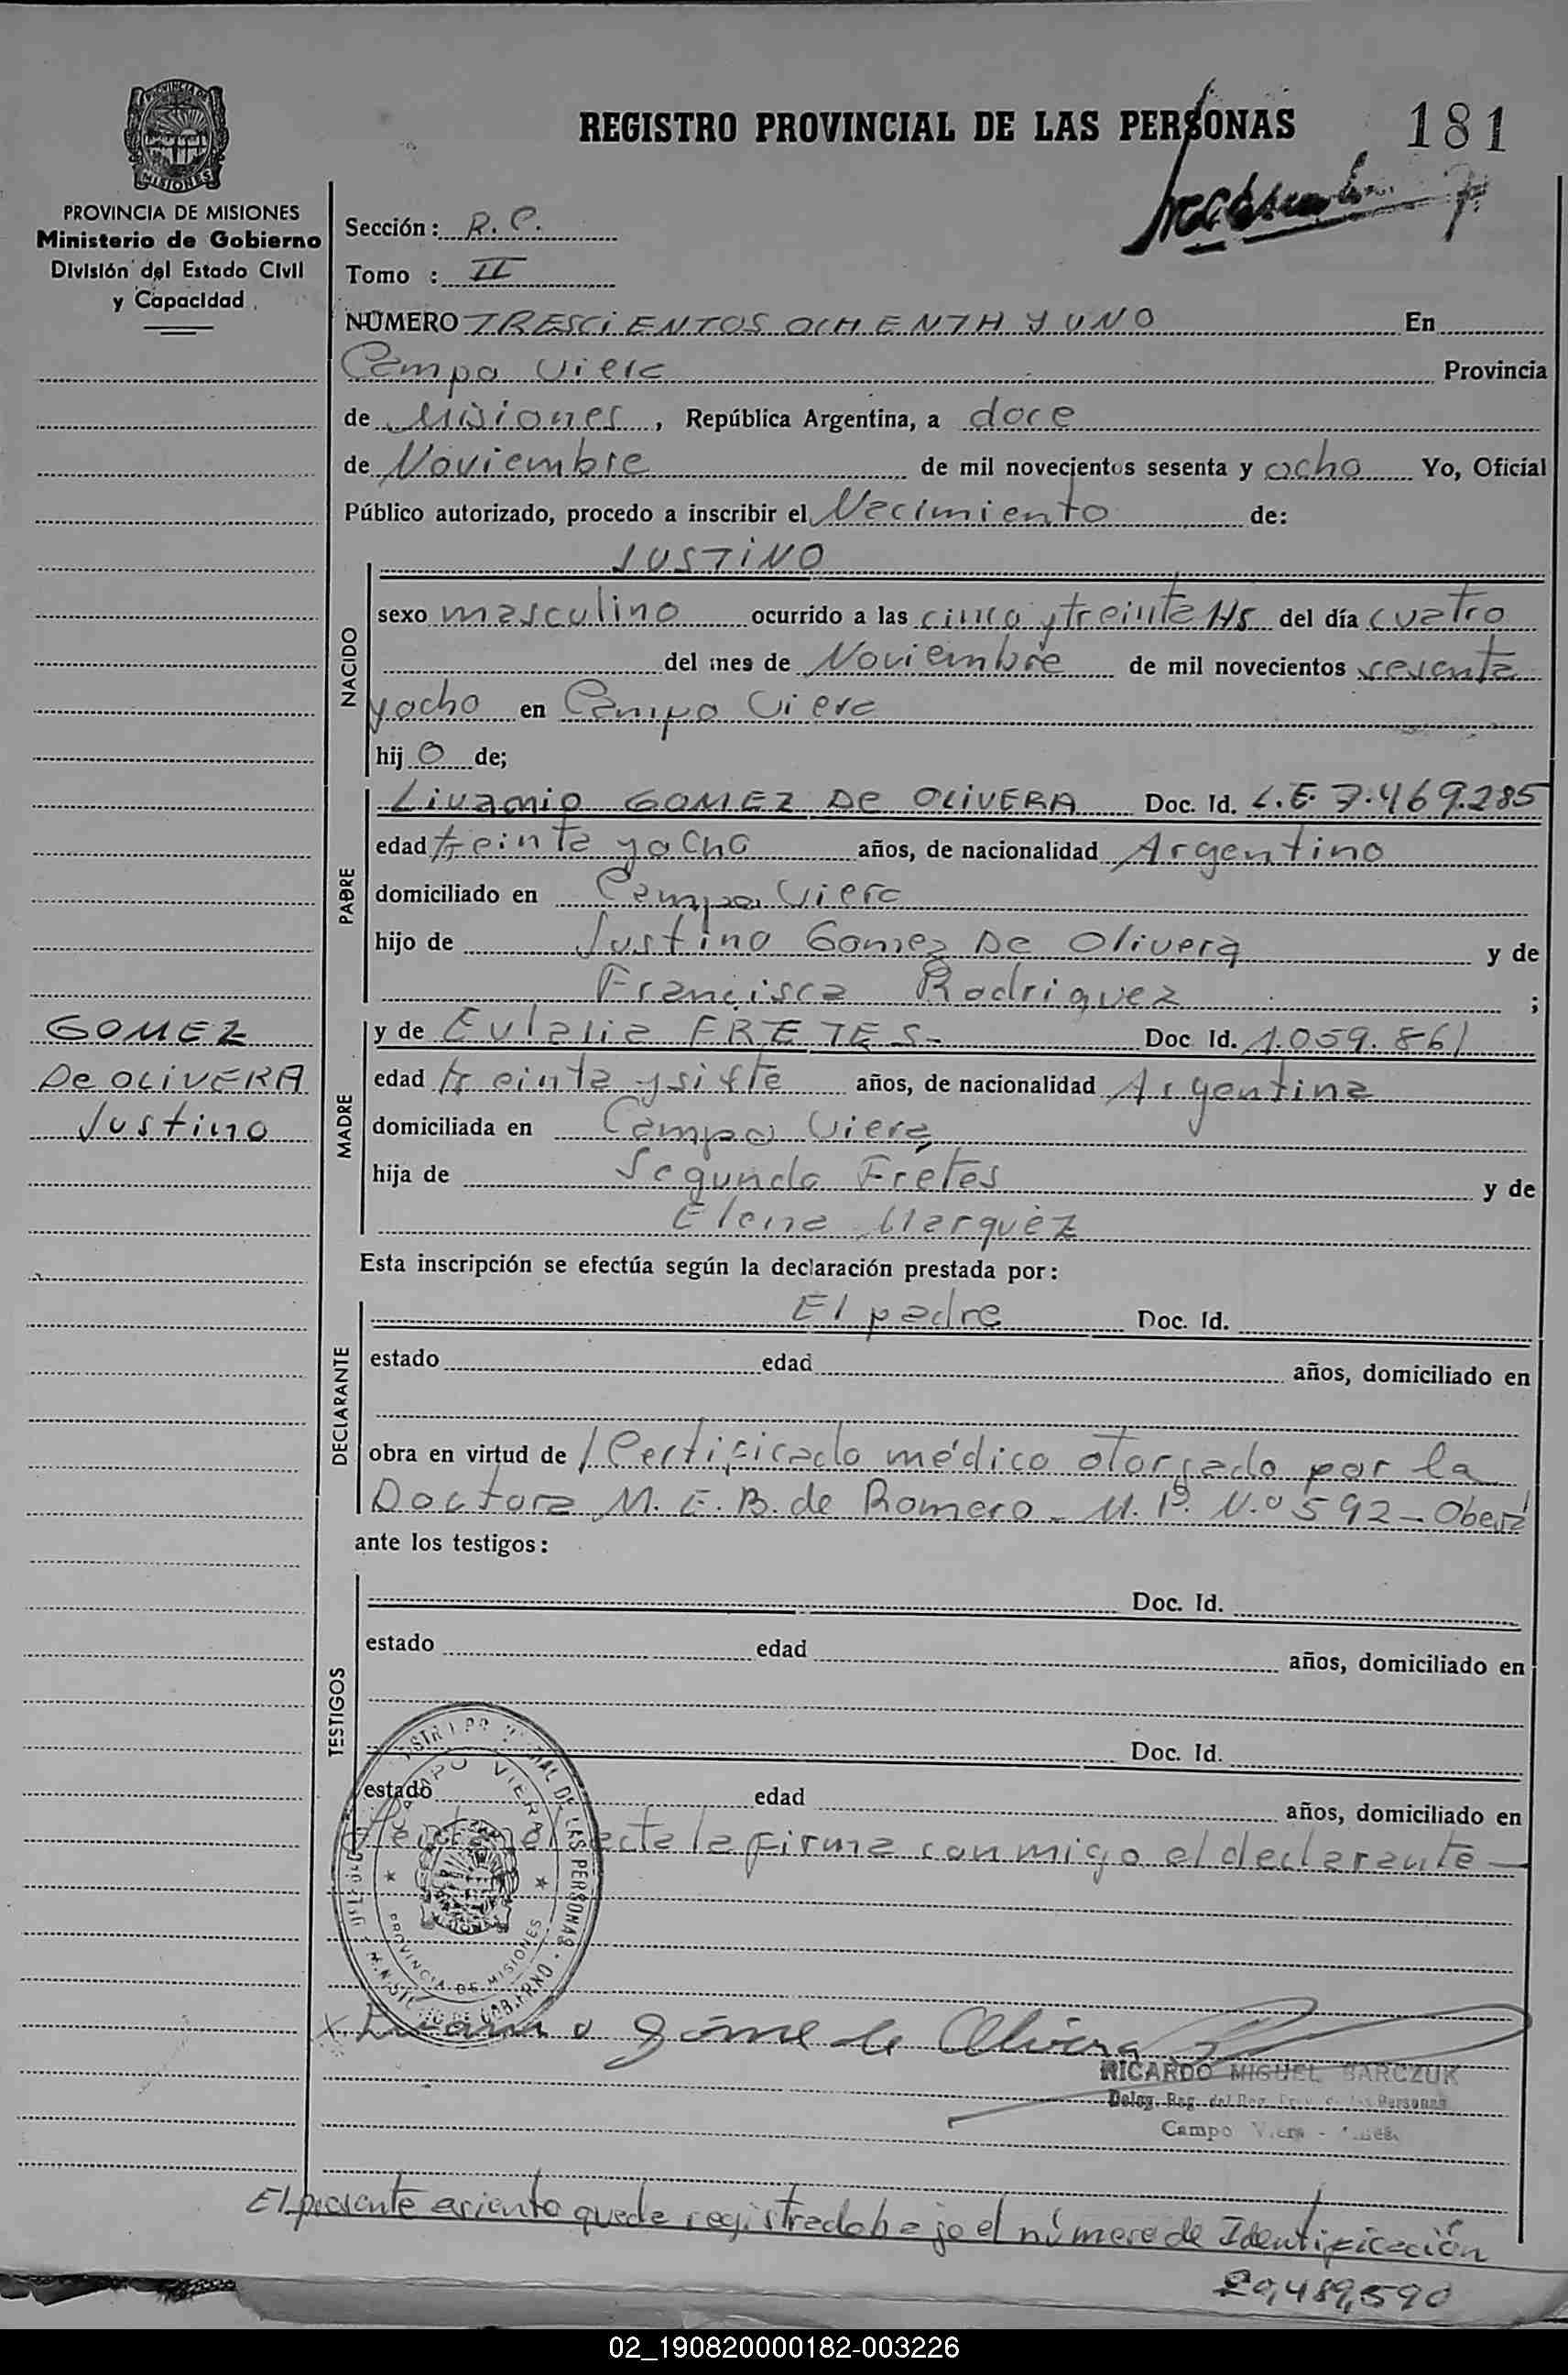 REGISTRO PROVINCIAL DE LAS PERSONAS
181
PROVINCIA DE MISIONES
Ministerio de Gobierno
División del Estado Civil
y Capacidad
Sección: R. C.
Tomo : II
NÚMERO TRESCIENTOS OCHENTA Y UNO En
Campo Viera Provincia
de Misiones, República Argentina, a doce
de Noviembre de mil novecientos sesenta y ocho Yo, Oficial
Público autorizado, procedo a inscribir el Nacimiento de:
JUSTINO
NACIDO
sexo masculino ocurrido a las cinco y treinta Hs del día cuatro
del mes de Noviembre de mil novecientos sesenta
y ocho en Campo Viera
hij o de;
PADRE
GOMEZ DE OLIVERA Doc. Id. L.E. 7.469.285
edad treinta y ocho años, de nacionalidad Argentino
domiciliado en Campo Viera
hijo de Justino Gomez De Olivera y de
Francisca Rodriguez ;
GOMEZ
De OLIVERA
Justino
MADRE
y de Eulalia FRETES- Doc. Id. 1.059.861
edad treinta y siete años, de nacionalidad Argentina
domiciliada en Campo Viera
hija de Segundo Fretes y de
Elena Marquez
Esta inscripción se efectúa según la declaración prestada por:
DECLARANTE
El padre Doc. Id.
estado edad años, domiciliado en
obra en virtud de / Certificado médico otorgado por la
Doctora M. E. B. de Romero - M. P. N.º 592 - Oberá
ante los testigos:
TESTIGOS
Doc. Id.
estado edad años, domiciliado en
Doc. Id.
estado edad años, domiciliado en
el acta la firma conmigo el declarante -
CAMPO VIERA
PROVINCIA DE MISIONES
Góme de Olivera
RICARDO MIGUEL SARCZUK
Campo Viera
El presente asiento queda registrado bajo el número de Identificación
20,489,590
02_190820000182-003226